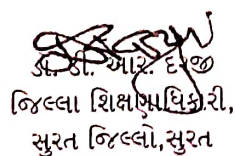 ડૉ. ડી. આર. દરજી
જિલ્લા શિક્ષણાધિકારી,
સુરત જિલ્લો,સુરત